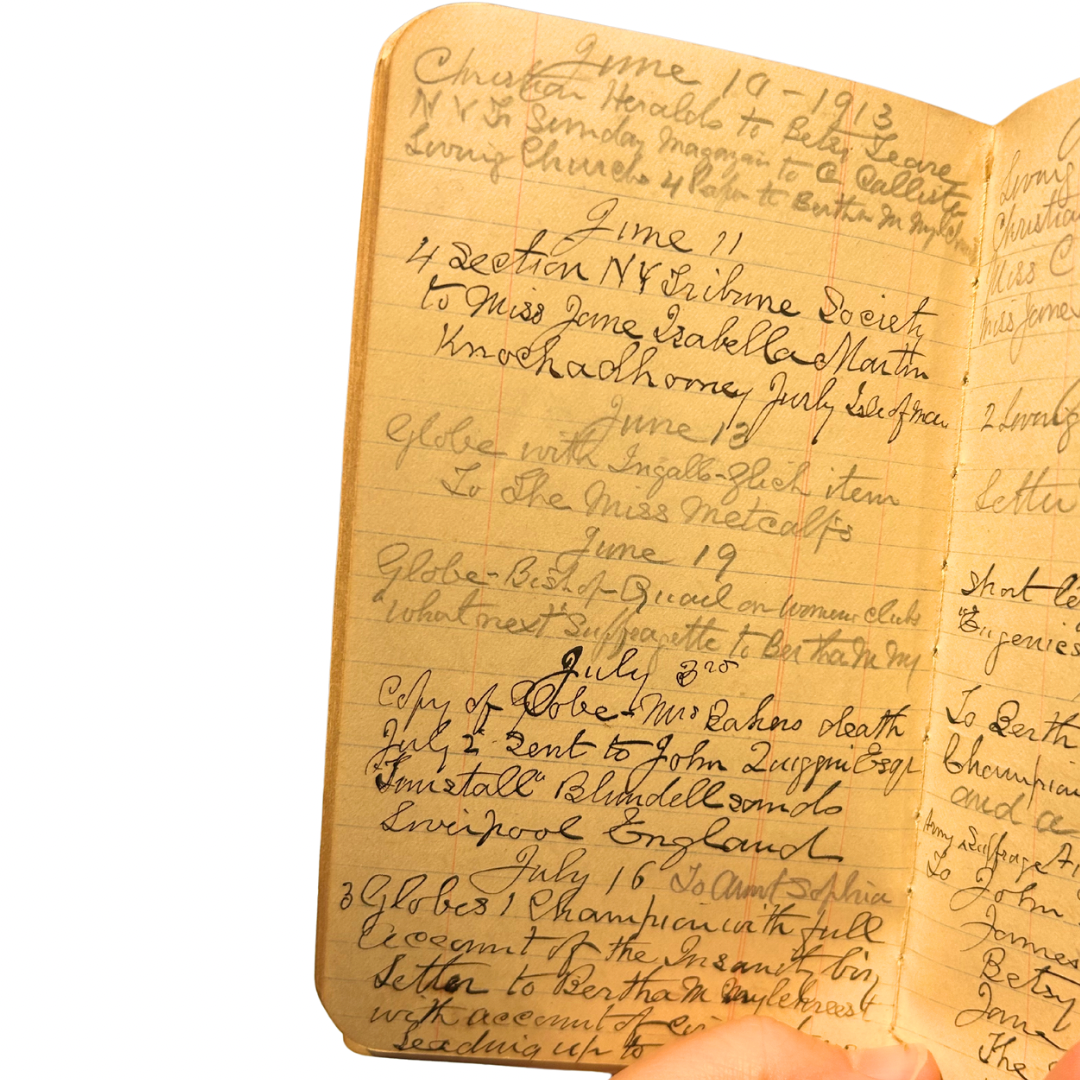 June 10 - 1913
Christian Heralds to Betsy Teare
N Y Tr Sunday Magazin to C Callister
Living Church 4 Paper to Bertha M
June 11
4 Section NY Tribune Society
to Miss Jane Isabella Martin
Knochadhooney Jurby Isle of Man
June 13
Globe with Ingalls- item
To The Miss Metcalfs
June 19
Globe- Bishop on womens clubs
"What next" Suffragette to Bertha M My
July 3rd
Copy of Globe- Mrs Bakers death
July 2 sent to John Quiggin Esqr
"Tunstall" Blundellsands
Liverpool England
July 16 To Aunt Sophia
3 Globes 1 Champion with full
account of the Insanity
Letter to Bertha M Mylchreest
with account of
Leading up to
Living
Christia
Miss C
Miss Jane
2 Living
Letter
short le
"Eugenics
To Berth
Champion
and a
Army Suffrage
To John
James
Betsy
Jane
The